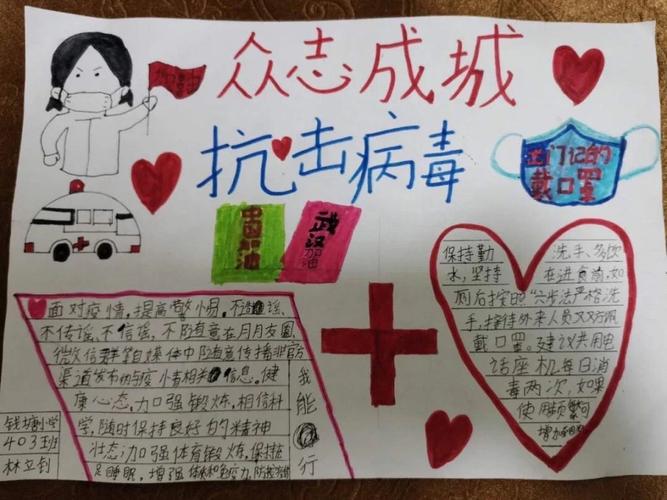 加油
众志成城
抗击病毒
出门记的
戴口罩
中国加油
武汉加油
保持勤 洗手、多饮
水,坚持 在进食前,如
厕后按照“六步法严格洗
手,接待外来人员又双方佩
戴口罩。建议共用电
话座机每日消
毒两次,如果
使用频繁可
增加
面对疫情,提高警惕。不造谣、
不传谣、不信谣,不随意在朋友圈
微信群自媒体中随意传播非官
渠道发布的与疫情相关信息。健
康心态,加强锻炼,相信科
学,随时保持良好的精神
壮态加强体育锻炼,保持
足睡眠,增强体和免疫力,防
我能行
钱塘小学
403班
林立钊